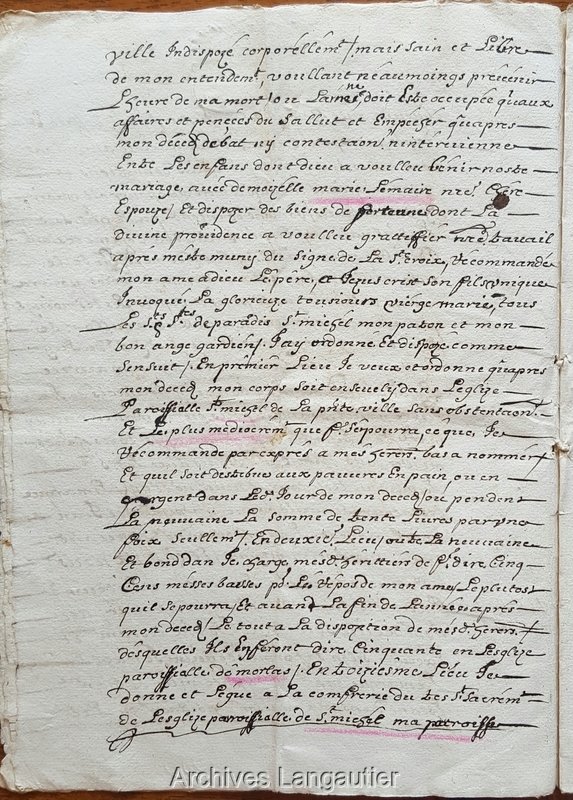 ville Indispozé corporellemt/. mais sain et Libre
de mon entendemt, voullant neaumoings prevenir
Lheure de ma mort/ ou Lame ne doit Estre occupée qu'aux
affaires et penćées du Sallut et Empecher qu'apres
mon décedz debat ny contestaōn, n'intervienne
Entre Les enfans dont dieu a voulleu benir nostre
mariage, avec demoizelle marie Lemaire ma chere
Espouze/ Et dispozer des biens de fortune dont La
divine providence a voulleu grattiffier travail
apres mestre muny du Signe de La Ste Croix, recommandé
mon ame a dieu Le père, et Jezus crist Son fils unique
Invoqué, La glorieuze tousiours vierge marie, tous
Les Sts Stes de paradis St michel mon patron et mon
bon ange gardien/. J'ay ordonne Et dispozé comme
Sensuit/. En prémier Lieu Je veux et ordonne qu'apres
mon décedz mon corps soit enseuelÿ dans L'eglize
Paroissialle St michel de La pñte ville sans obstentaōn.
Et Le plus mediocremt que fe Se pourra, ce que Je
Récommande par exprés a mes herers bas a nommer/
Et quil soit destribué aux pauvres En pain, ou en
argent dans Led. Jour de mon décedz/ ou pendent
La neuvaine La somme de trente Livres par une
foix seullemt/. En deuxie Lieu/ outre La neuvaine
Et bond dan Je charge mesd. herittiers de fe dire Cinq
Cens messes basses pr Le répos de mon ame/ Le plutost
quil se pourra/ Et avant La fin de L'année apres
mon decedz/ Le tout a La dispoztion de mesd. herers/.
desquelles Ils En féront dire Cinquante en L'esglize
paroissialle de morlas/. En troiziesme Liéu Je
donne et Legue a La comfrerie du tres St Sacremt
de L'esglize paroissialle de St michel ma paroisse
Archives Langautier